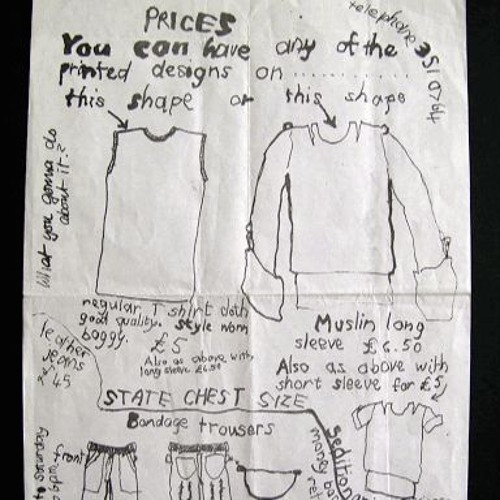 PRICES
telephone 351 0764
You can have any of the
printed designs on ..........
this shape or this shape
What you gonna do
about it?
regular T shirt cloth
good quality. Style norm
baggy.
£5
Also as above with
long sleeve £6.50
Muslin long
sleeve £6.50
Also as above with
short sleeve for £5
leather
jeans
£45
STATE CHEST SIZE
Bondage trousers
front
to saturday
6pm.
sedition
money